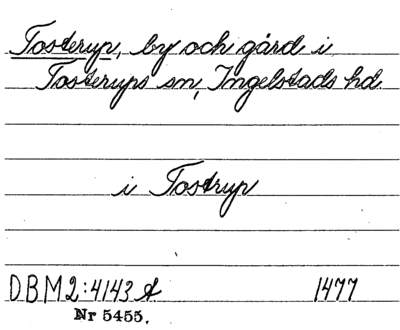 Tosterup, by och gård i
Tosterups sn, Ingelstads hd.
i Tostrup
DBM2:4143 A 1477
Nr 5455.